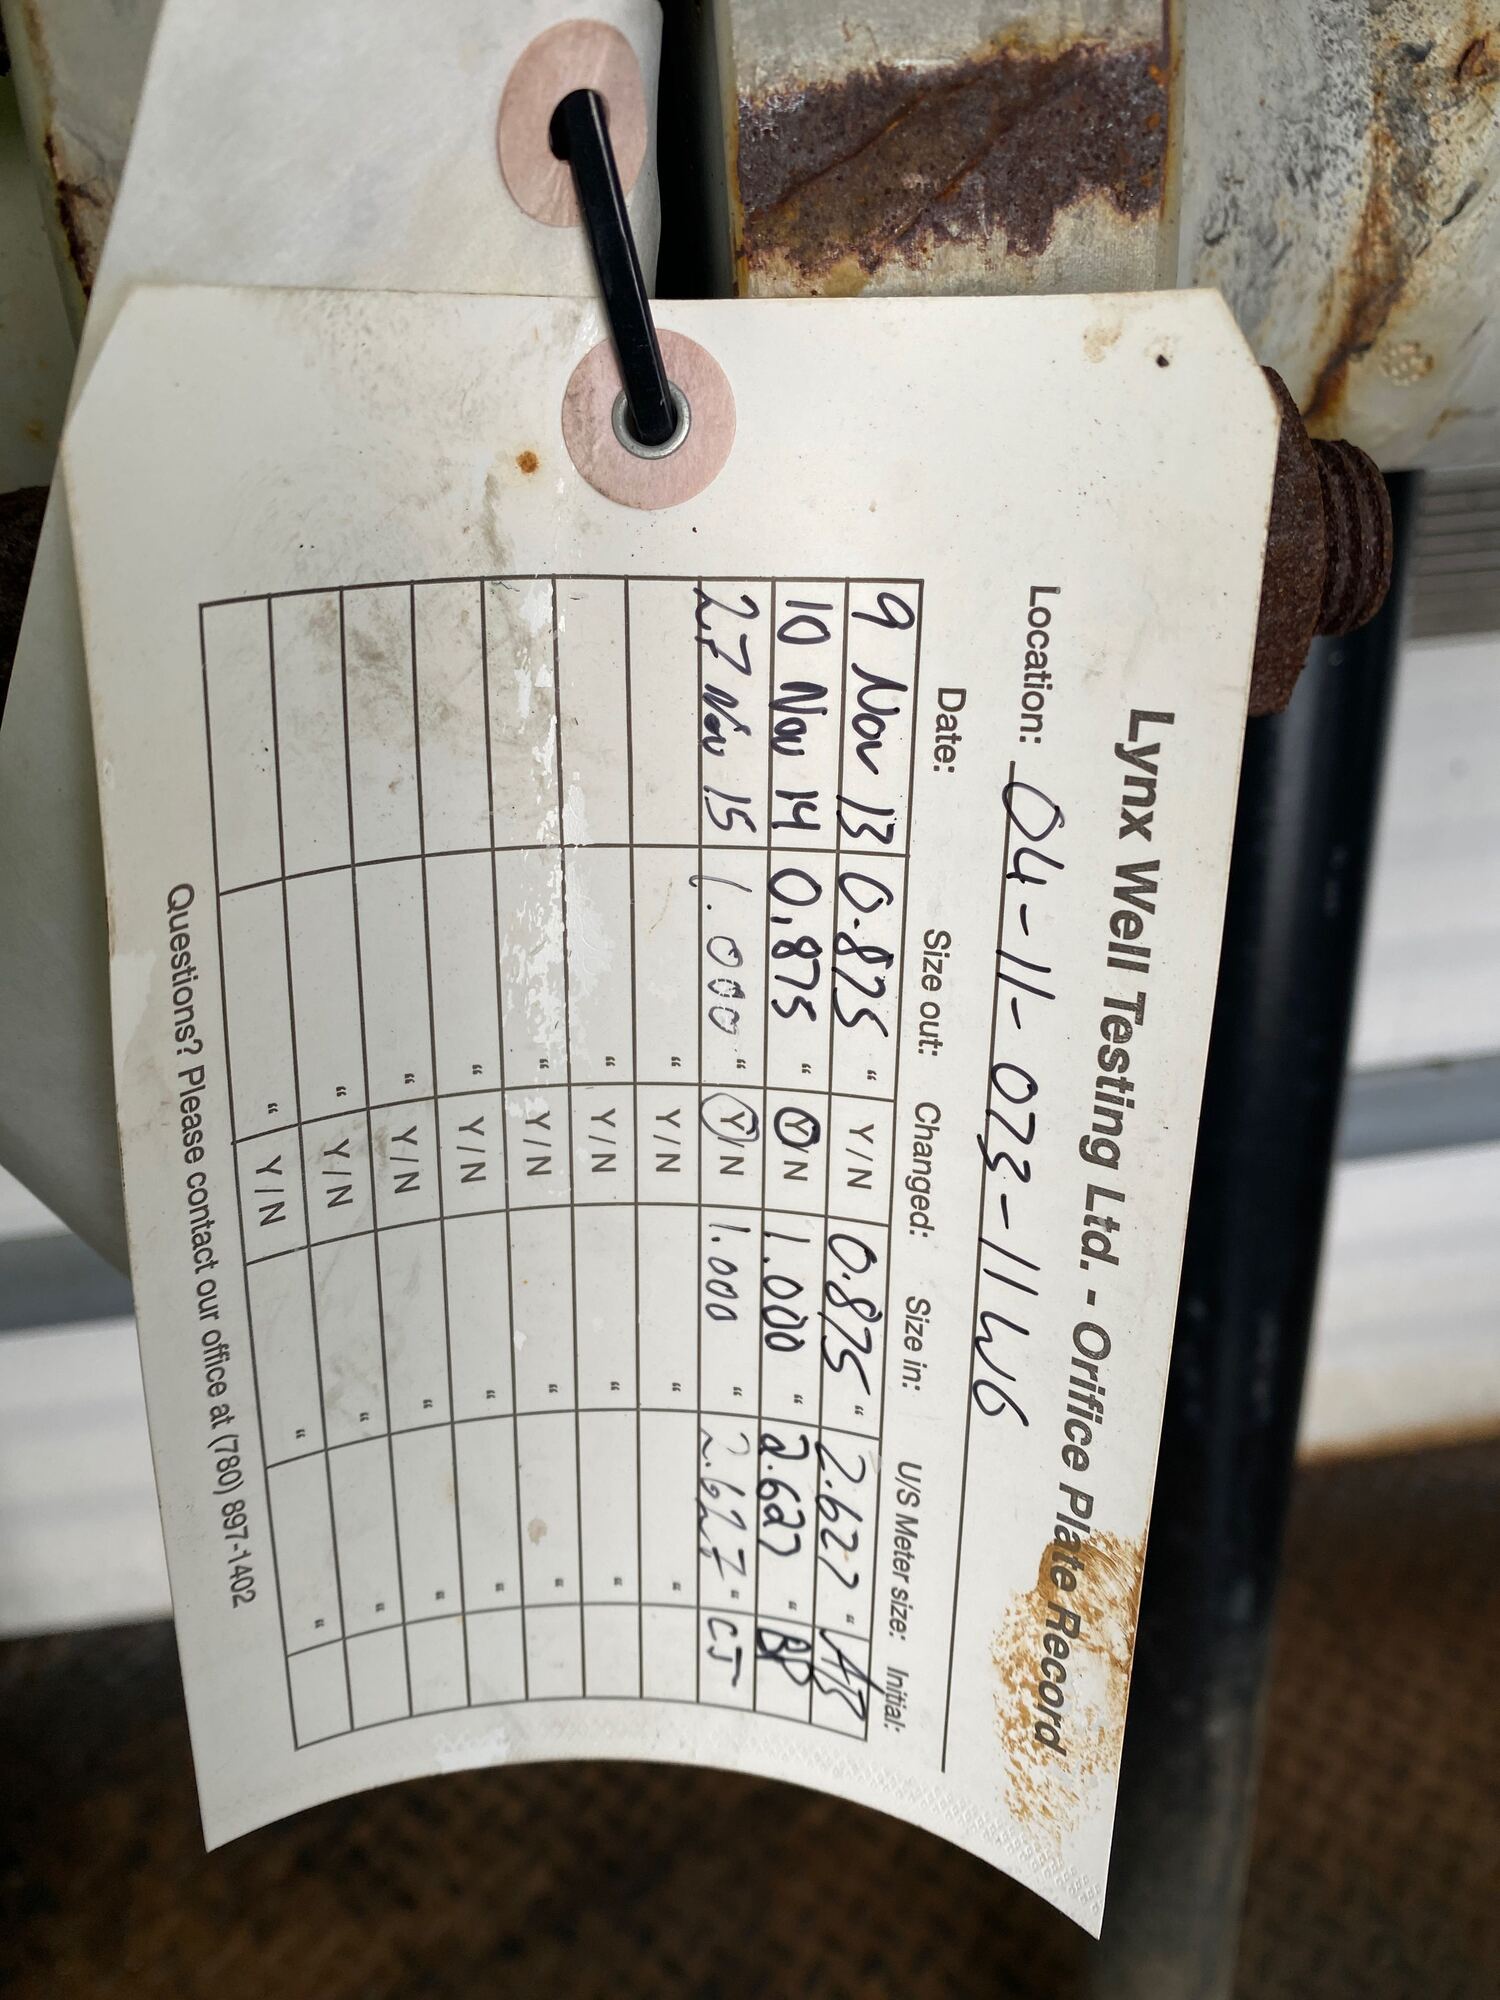 Lynx Well Testing Ltd. - Orifice Plate Record
Location: 04-11-073-11W6
Date: Size out: Changed: Size in: U/S Meter size: Initial:
9 Nov 13 0.875 " Y/N 0.875 " 2.627 " AB
10 Nov 14 0.875 " Y/N 1.000 " 2.627 " BP
27 Nov 15 1.000 " Y/N 1.000 " 2.627 " CJ
" Y/N " "
" Y/N " "
" Y/N " "
" Y/N " "
" Y/N " "
" Y/N " "
" Y/N " "
Questions? Please contact our office at (780) 897-1402